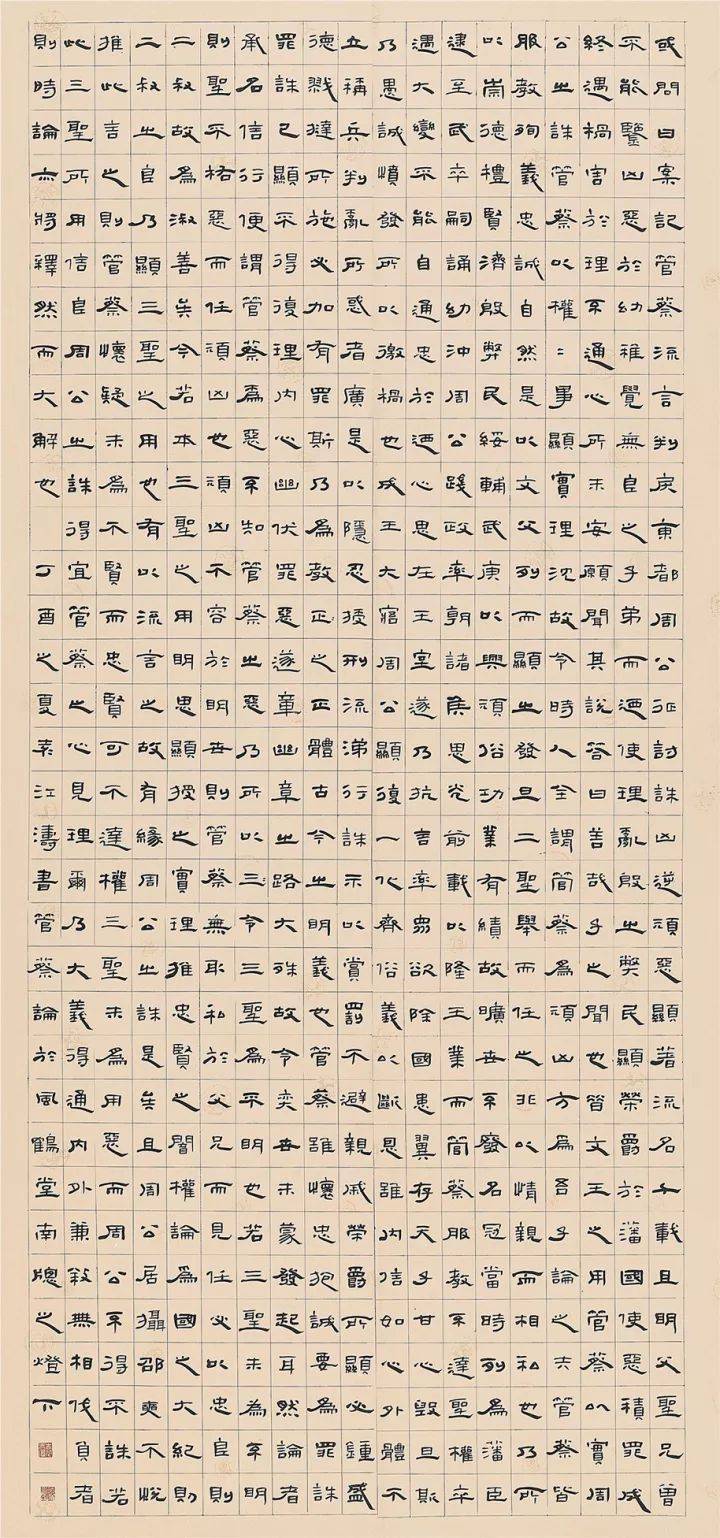 或問曰案記管蔡流言判戾東都周公征討誅凶逆頑惡顯著流名千載且明父聖兄曾
不能鑒凶惡於幼稚覺無良之子弟而迺使理亂殷之弊民顯榮爵於藩國使惡積罪成
終遇禍害於理不通心所未安願聞其說答曰善哉子之聞也昔文王之用管蔡以實周
公之誅管蔡以權〻事顯實理沈故令時人全謂管蔡為頑凶方為吾子論之夫管蔡皆
服教殉義忠誠自然是以文父列而顯之發旦二聖舉而任之非以情親而相私也乃所
以崇德禮賢濟殷弊民綏輔武庚以興頑俗功業有績故曠世不廢名冠當時列為藩臣
逮至武卒嗣誦幼沖周公踐政率朝諸侯思光前載以隆王業而管蔡服教不達聖權卒
遇大變不能自通忠於迺心思在王室遂乃抗言率眾欲除國患翼存天子甘心毀旦斯
乃愚誠憤發所以徼禍也成王大寤周公顯復一化齊俗義以斷恩雖內信如心外體不
立稱兵判亂所惑者廣是以隱忍授刑流涕行誅示以賞罰不避親戚榮爵所顯必鍾盛
德戮撻所施必加有罪斯乃為教正之正體古今之明義也管蔡雖懷忠抱誠要為罪誅
罪誅已顯不得復理內心幽伏罪惡遂章幽章之路大殊故令奕世未蒙發起耳然論者
承名信行便謂管蔡為惡不知管蔡之惡乃所以令三聖為不明也若三聖未為不明則
則聖不祐惡而任頑凶也頑凶不容於明世則管蔡無取私於父兄而見任必以忠良則
二叔故為淑善矣今若本三聖之用明思顯授之實理推忠賢之闇權論為國之大紀則
二叔之良乃顯三聖之用也有以流言之故有緣周公之誅是矣且周公居攝邵奭不悅
推此言之則管蔡懷疑未為不賢而忠賢可不達權三聖未為用惡而周公不得不誅若
此三聖所用信良周公之誅得宜管蔡之心見理爾乃大義得通內外兼敘無相伐負者
則時論亦將釋然而大解也 丁酉之夏素江濤書管蔡論於風鶴堂南牕之燈下